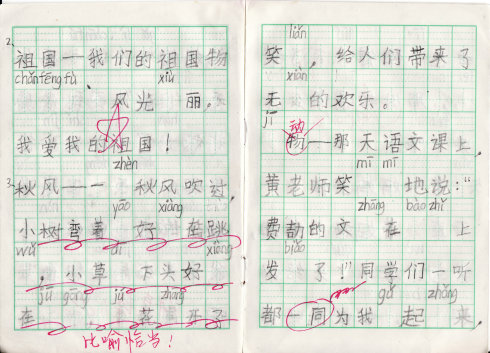 2.
祖国—我们的祖国物
chǎn fēng fù、 xiù
风光 丽。
我爱我的祖国！
3. zhèn
秋风—— 秋风吹过，
yāo xiàng
小树弯着 好 在跳
wǔ xiàng
。小草 下头好
jū gōng jú
在 花
比喻恰当！
liǎn
笑 ，给人们带来了
xiàn
无 的欢乐。
jī 动
——那天语文课上，
mī mī
黄老师笑 地说：“
zhāng bào zhǐ
的文 在 上
biǎo
发 了！”同学们一听
gǔ zhǎng
都一同为我 起 来